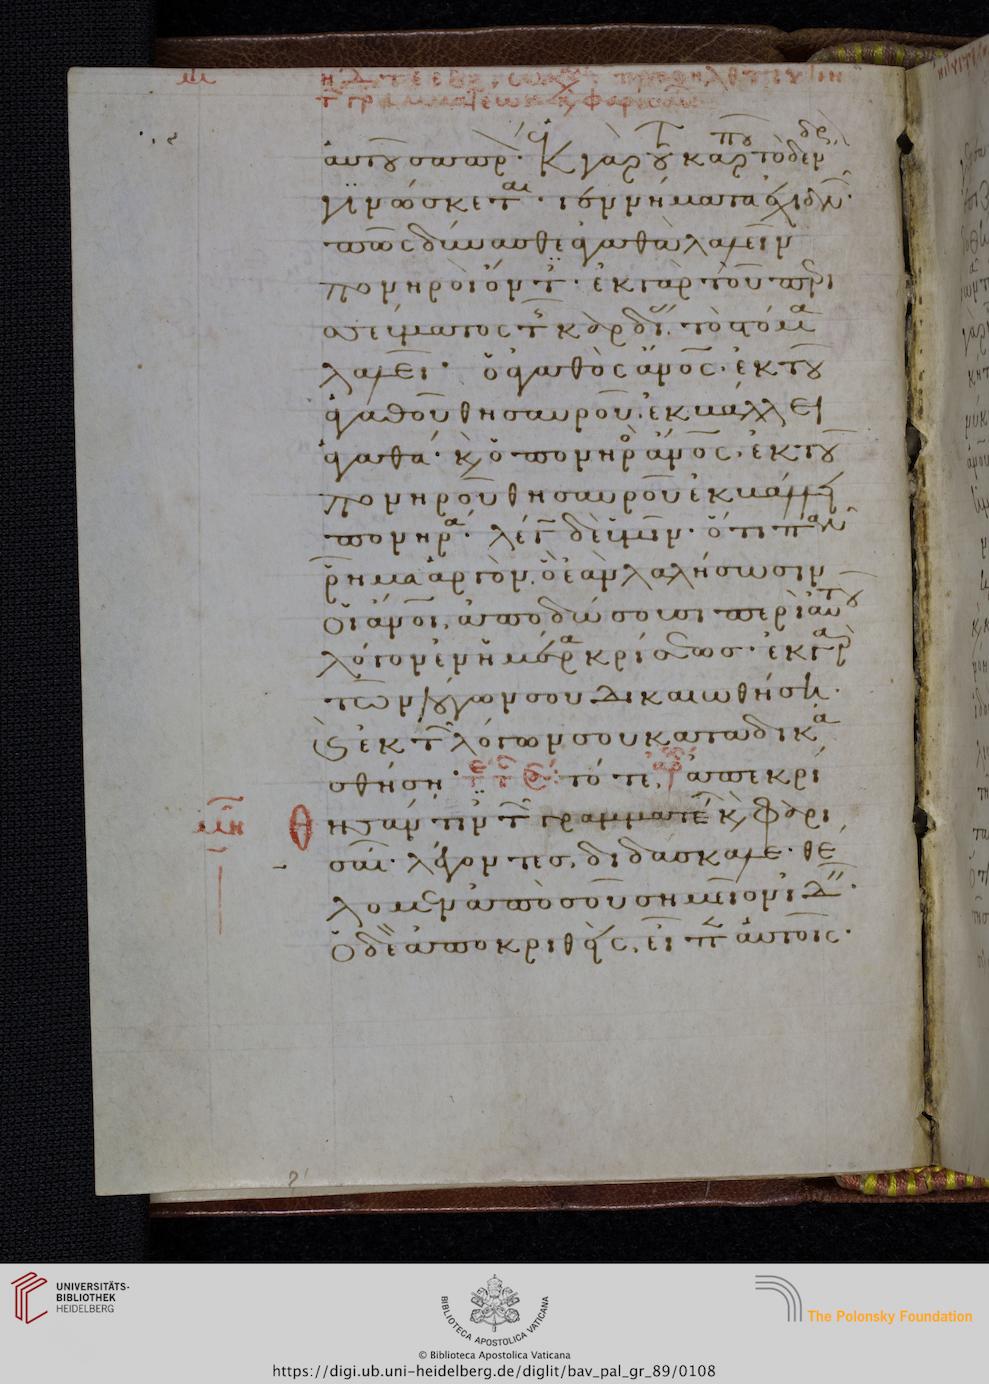 αυτοῦ σαπρ. ἐκ γὰρ τοῦ καρποῦ τὸ δένδρ
γϊνώσκεται. γεννήματα ἐχιδν.
πῶς δύνασθε ἀγαθὰ λαλεῖν
πονηροὶ ὄντ. ἐκ γὰρ τοῦ περι
σσεύματος τ καρδί. τὸ στόμα
λαλεῖ. ὁ ἀγαθὸς ἄνος. ἐκ τοῦ
ἀγαθοῦ θησαυροῦ. ἐκβάλλει
ἀγαθά. κ ὁ πονηρο ἄνος. ἐκ τοῦ
πονηροῦ θησαυροῦ ἐκβάλλει
πονηρα. λέγ δὲ ὑμῖν. ὅτι παν
ῥῆμα ἀργὸν. ὃ ἐὰν λαλήσωσιν
οἱ ἄνοι, ἀποδώσουσι περὶ αυτοῦ
λόγον ἐν ἡμέρα κρίσεως. ἐκ γαρ
τῶν λόγων σου δικαιωθήσῃ.
κ ἐκ τ λόγων σου καταδικα
σθήσῃ. τότε, ἀπεκρί
θησάν τιν τ γραμματέ κ φαρι
σαί. λέγοντες, διδάσκαλε. θέ
λομεν ἀπὸ σοῦ σημεῖον ἰδ.
ὁ δὲ ἀποκριθεὶς, εἶπ αὐτοῖς.
μη
UNIVERSITÄTS-
BIBLIOTHEK
HEIDELBERG
BIBLIOTECA APOSTOLICA VATICANA
The Polonsky Foundation
© Biblioteca Apostolica Vaticana
https://digi.ub.uni-heidelberg.de/diglit/bav_pal_gr_89/0108